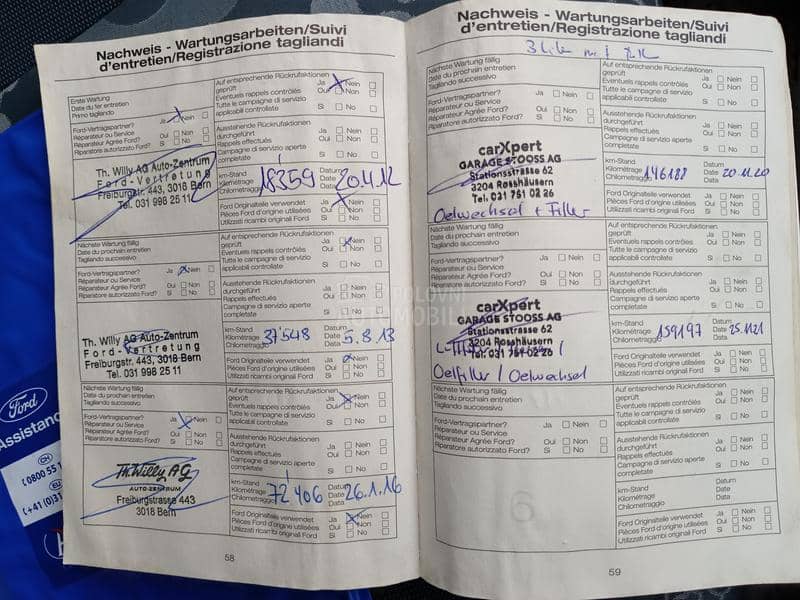 Nachweis - Wartungsarbeiten/Suivi
d'entretien/Registrazione tagliandi
Erste Wartung
Date du 1er entretien
Primo tagliando
Auf entsprechende Rückrufaktionen
geprüft Ja Nein
Eventuels rappels contrôlés Oui Non
Tutte le campagne di servizio
applicabili controllate Si No
Ford-Vertragspartner? Ja Nein
Réparateur ou Service
Réparateur Agrée Ford? Oui Non
Riparatore autorizzato Ford? Si No
Ausstehende Rückrufaktionen
durchgeführt Ja Nein
Rappels effectués Oui Non
Campagne di servizio aperte
completate Si No
Th. Willy AG Auto-Zentrum
Ford-Vertretung
Freiburgstr. 443, 3018 Bern
Tel. 031 998 25 11
km-Stand Datum
Kilométrage 18359 Date 20.4.12
Chilometraggio Data
Ford Originalteile verwendet Ja Nein
Pièces Ford d'origine utilisées Oui Non
Utilizzati ricambi original Ford Si No
Nächste Wartung fällig
Date du prochain entretien
Tagliando successivo
Auf entsprechende Rückrufaktionen
geprüft Ja Nein
Eventuels rappels contrôlés Oui Non
Tutte le campagne di servizio
applicabili controllate Si No
Ford-Vertragspartner? Ja Nein
Réparateur ou Service
Réparateur Agrée Ford? Oui Non
Riparatore autorizzato Ford? Si No
Ausstehende Rückrufaktionen
durchgeführt Ja Nein
Rappels effectués Oui Non
Campagne di servizio aperte
completate Si No
Th. Willy AG Auto-Zentrum
Ford-Vertretung
Freiburgstr. 443, 3018 Bern
Tel. 031 998 25 11
km-Stand Datum
Kilométrage 37548 Date 5.8.13
Chilometraggio Data
Ford Originalteile verwendet Ja Nein
Pièces Ford d'origine utilisées Oui Non
Utilizzati ricambi original Ford Si No
Nächste Wartung fällig
Date du prochain entretien
Tagliando successivo
Auf entsprechende Rückrufaktionen
geprüft Ja Nein
Eventuels rappels contrôlés Oui Non
Tutte le campagne di servizio
applicabili controllate Si No
Ford-Vertragspartner? Ja Nein
Réparateur ou Service
Réparateur Agrée Ford? Oui Non
Riparatore autorizzato Ford? Si No
Ausstehende Rückrufaktionen
durchgeführt Ja Nein
Rappels effectués Oui Non
Campagne di servizio aperte
completate Si No
Th. Willy AG
AUTO-ZENTRUM
Freiburgstrasse 443
3018 Bern
km-Stand Datum
Kilométrage 72406 Date 26.1.16
Chilometraggio Data
Ford Originalteile verwendet Ja Nein
Pièces Ford d'origine utilisées Oui Non
Utilizzati ricambi original Ford Si No
58
Nachweis - Wartungsarbeiten/Suivi
d'entretien/Registrazione tagliandi
Nächste Wartung fällig
Date du prochain entretien
Tagliando successivo
Auf entsprechende Rückrufaktionen
geprüft Ja Nein
Eventuels rappels contrôlés Oui Non
Tutte le campagne di servizio
applicabili controllate Si No
Ford-Vertragspartner? Ja Nein
Réparateur ou Service
Réparateur Agrée Ford? Oui Non
Riparatore autorizzato Ford? Si No
Ausstehende Rückrufaktionen
durchgeführt Ja Nein
Rappels effectués Oui Non
Campagne di servizio aperte
completate Si No
carXpert
GARAGE STOOSS AG
Stationsstrasse 62
3204 Rosshäusern
Tel. 031 751 02 26
Oelwechsel + Filter
km-Stand Datum
Kilométrage 146188 Date 20.11.20
Chilometraggio Data
Ford Originalteile verwendet Ja Nein
Pièces Ford d'origine utilisées Oui Non
Utilizzati ricambi original Ford Si No
Nächste Wartung fällig
Date du prochain entretien
Tagliando successivo
Auf entsprechende Rückrufaktionen
geprüft Ja Nein
Eventuels rappels contrôlés Oui Non
Tutte le campagne di servizio
applicabili controllate Si No
Ford-Vertragspartner? Ja Nein
Réparateur ou Service
Réparateur Agrée Ford? Oui Non
Riparatore autorizzato Ford? Si No
Ausstehende Rückrufaktionen
durchgeführt Ja Nein
Rappels effectués Oui Non
Campagne di servizio aperte
completate Si No
carXpert
GARAGE STOOSS AG
Stationsstrasse 62
3204 Rosshäusern
Tel. 031 751 02 26
Oelfilter / Oelwechsel
km-Stand Datum
Kilométrage 159197 Date 25.11.21
Chilometraggio Data
Ford Originalteile verwendet Ja Nein
Pièces Ford d'origine utilisées Oui Non
Utilizzati ricambi original Ford Si No
Nächste Wartung fällig
Date du prochain entretien
Tagliando successivo
Auf entsprechende Rückrufaktionen
geprüft Ja Nein
Eventuels rappels contrôlés Oui Non
Tutte le campagne di servizio
applicabili controllate Si No
Ford-Vertragspartner? Ja Nein
Réparateur ou Service
Réparateur Agrée Ford? Oui Non
Riparatore autorizzato Ford? Si No
Ausstehende Rückrufaktionen
durchgeführt Ja Nein
Rappels effectués Oui Non
Campagne di servizio aperte
completate Si No
km-Stand Datum
Kilométrage Date
Chilometraggio Data
Ford Originalteile verwendet Ja Nein
Pièces Ford d'origine utilisées Oui Non
Utilizzati ricambi original Ford Si No
59
Ford
Assistance
CH
0800 55
EU
+41 (0)31